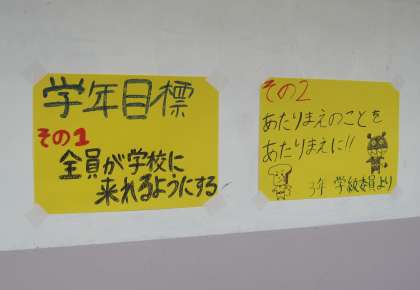 学年目標
その1
全員が学校に
来れるようにする
その2
あたりまえのことを
あたりまえに!!
3年 学級委員より